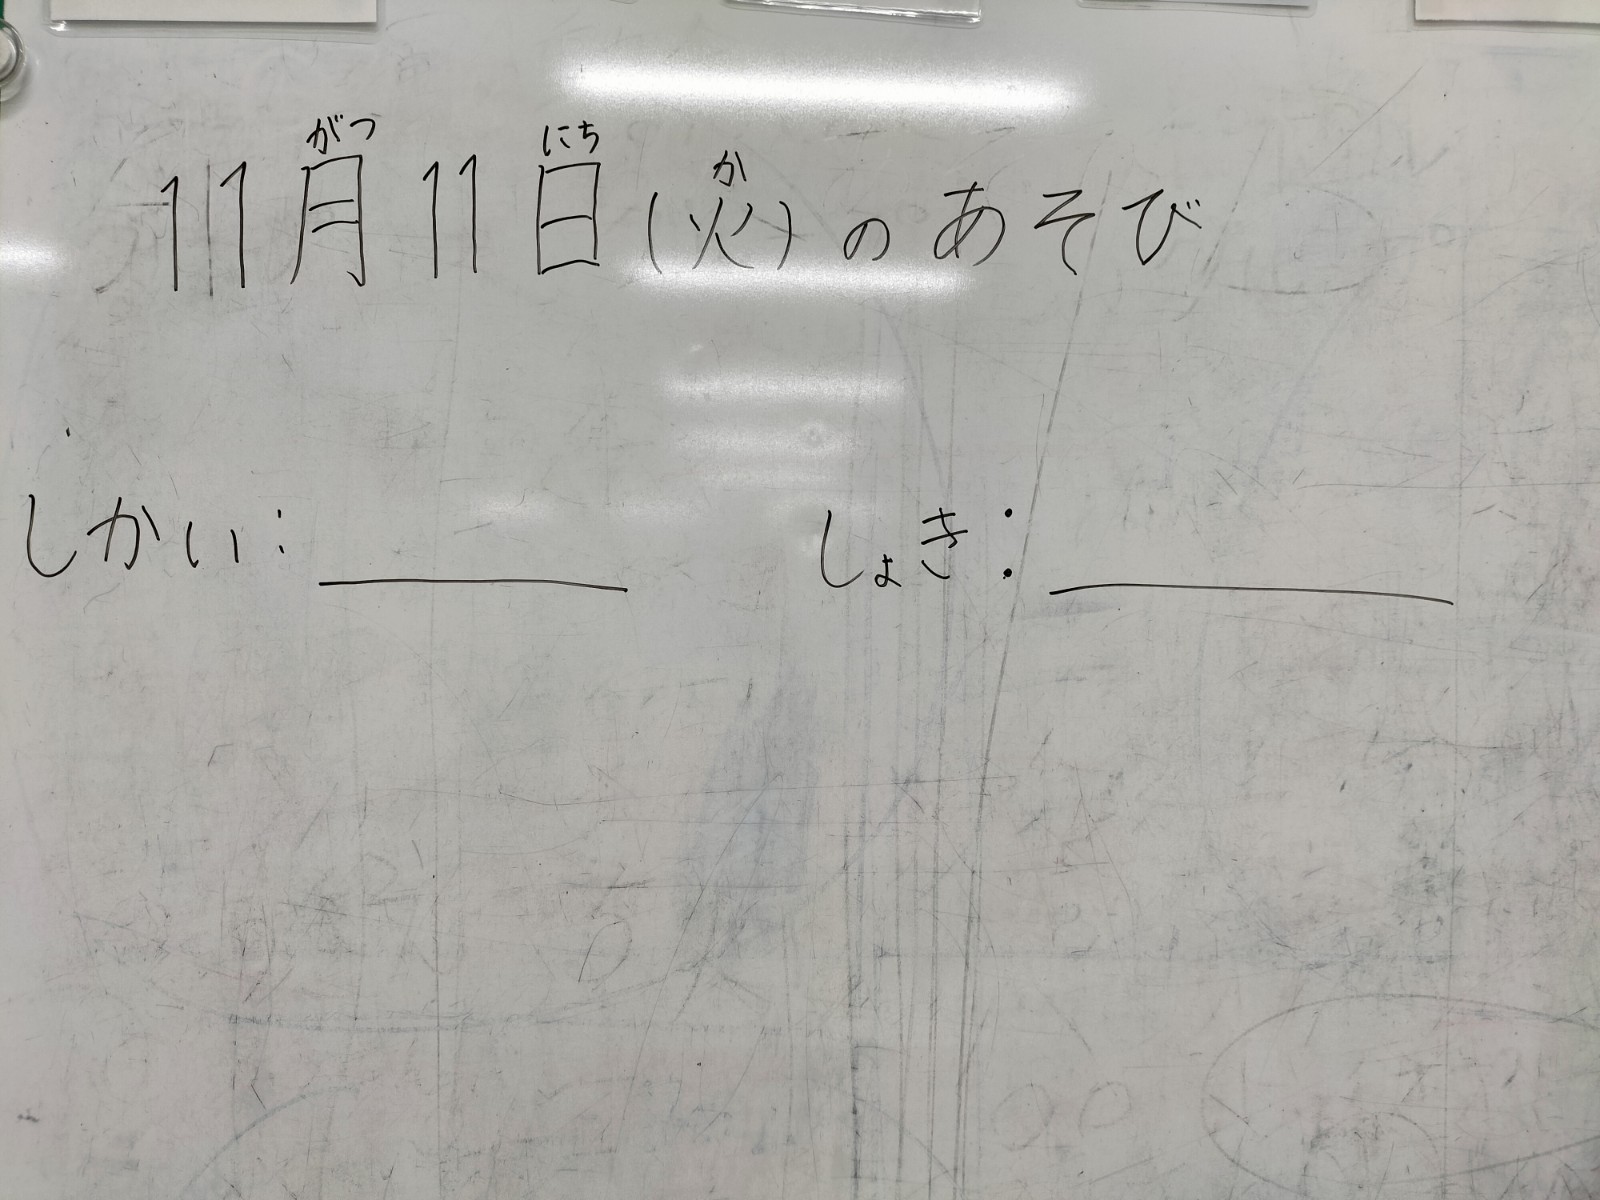 がつ にち か
11月11日(火)のあそび
しかい: しょき: